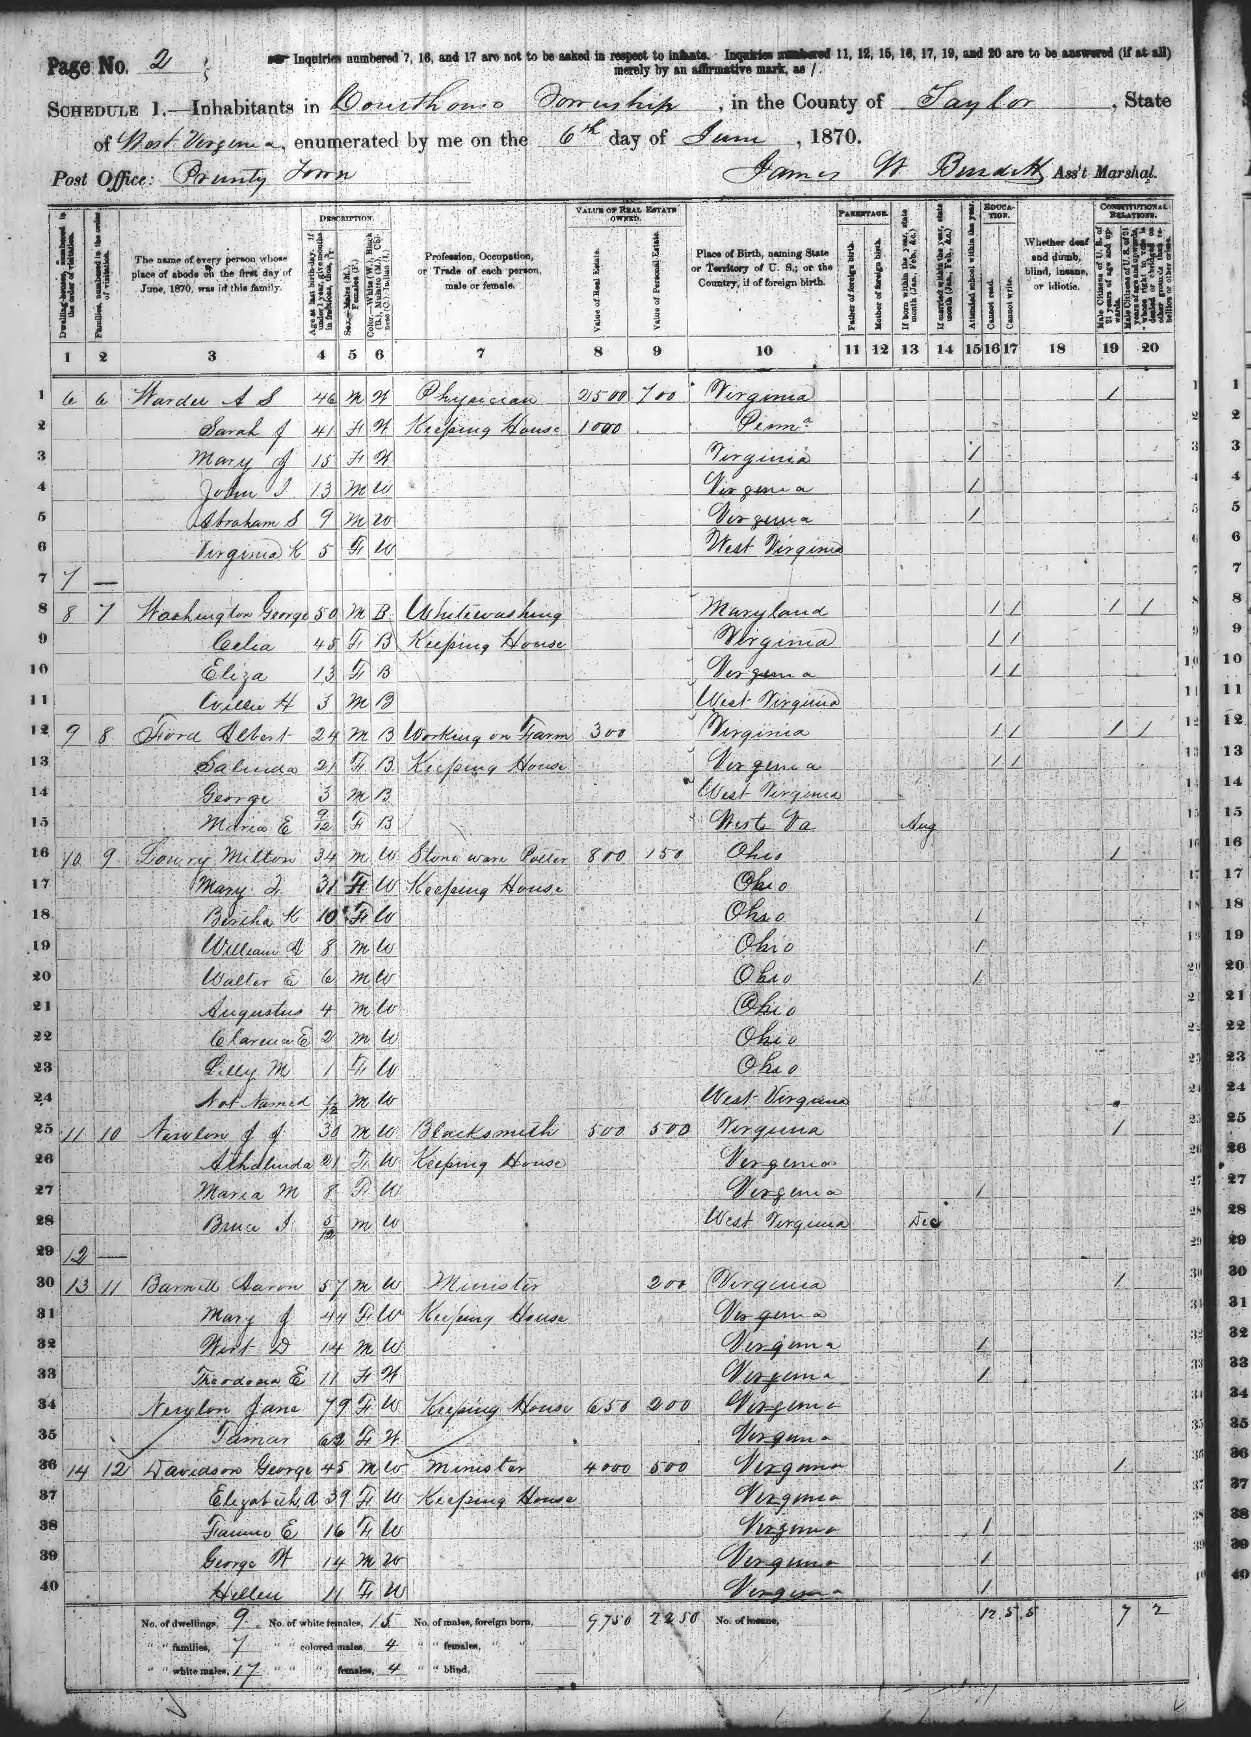 Page No. 2
Inquiries numbered 7, 16, and 17 are not to be asked in respect to infants. Inquiries numbered 11, 12, 15, 16, 17, 19, and 20 are to be answered (if at all)
merely by an affirmative mark, as /.
SCHEDULE 1.—Inhabitants in Courthouse Township, in the County of Taylor, State
of West Virginia, enumerated by me on the 6th day of June, 1870.
Post Office: Prunty Town James W Burdett Ass't Marshal.
DESCRIPTION. VALUE OF REAL ESTATE OWNED. PARENTAGE. EDUCATION. CONSTITUTIONAL RELATIONS.
Dwelling-houses, numbered in the order of visitation.
Families, numbered in the order of visitation.
The name of every person whose place of abode on the first day of June, 1870, was in this family.
Age at last birth-day. If under 1 year, give months in fractions, thus, 3/12
Sex.—Males (M.), Females (F.).
Color.—White (W.), Black (B.), Mulatto (M.), Chinese (C.), Indian (I.).
Profession, Occupation, or Trade of each person, male or female.
Value of Real Estate.
Value of Personal Estate.
Place of Birth, naming State or Territory of U. S.; or the Country, if of foreign birth.
Father of foreign birth.
Mother of foreign birth.
If born within the year, state month (Jan. Feb., &c.)
If married within the year, state month (Jan. Feb., &c.)
Attended school within the year.
Cannot read.
Cannot write.
Whether deaf and dumb, blind, insane, or idiotic.
Male Citizens of U. S. of 21 years of age and upwards.
Male Citizens of U. S. of 21 years of age and upwards, whose right to vote is denied or abridged on other grounds than rebellion or other crime.
1 2 3 4 5 6 7 8 9 10 11 12 13 14 15 16 17 18 19 20
1 6 6 Warder A S 46 M W Physician 2500 700 Virginia / 1
2 Sarah J 41 F W Keeping House 1000 Penna 2
3 Mary J 15 F W Virginia / 3
4 John I 13 M W Virginia / 4
5 Abraham S 9 M W Virginia / 5
6 Virginia K 5 F W West Virginia 6
7 7 — 7
8 8 7 Washington George 50 M B Whitewashing Maryland / / / / 8
9 Celia 45 F B Keeping House Virginia / / 9
10 Eliza 13 F B Virginia / / 10
11 Willie H 3 M B West Virginia 11
12 9 8 Ford Albert 24 M B Working on Farm 300 Virginia / / / / 12
13 Salinda 21 F B Keeping House Virginia / / 13
14 George 3 M B West Virginia 14
15 Maria E 9/12 F B West Va Aug 15
16 10 9 Lowry Milton 34 M W Stone ware Potter 800 150 Ohio / 16
17 Mary 31 F W Keeping House Ohio 17
18 Bertha K 10 F W Ohio / 18
19 William A 8 M W Ohio / 19
20 Walter E 6 M W Ohio / 20
21 Augustus 4 M W Ohio 21
22 Clarence E 2 M W Ohio 22
23 Lilly M 1 F W Ohio 23
24 Not Named 1/12 M W West Virginia 24
25 11 10 Newlon J J 30 M W Blacksmith 500 500 Virginia / 25
26 Athalinda 21 F W Keeping House Virginia 26
27 Maria M 8 F W Virginia / 27
28 Bruce I 5/12 M W West Virginia Dec 28
29 12 — 29
30 13 11 Barnett Aaron 57 M W Minister 200 Virginia / 30
31 Mary J 44 F W Keeping House Virginia 31
32 Wirt D 14 M W Virginia / 32
33 Theodocia E 11 F W Virginia / 33
34 Newlon Jane 79 F W Keeping House 650 200 Virginia 34
35 Tamar 62 F W Virginia 35
36 14 12 Davidson George 45 M W Minister 4000 500 Virginia / 36
37 Elizabeth A 39 F W Keeping House Virginia 37
38 Fannie E 16 F W Virginia / 38
39 George W 14 M W Virginia / 39
40 Hellen 11 F W Virginia / 40
No. of dwellings, 9 No. of white females, 15 No. of males, foreign born, 9750 2250 No. of insane, 12 5 5 7 2
" " families, 7 " " colored males, 4 " " females, " "
" " white males, 17 " " " females, 4 " " blind,